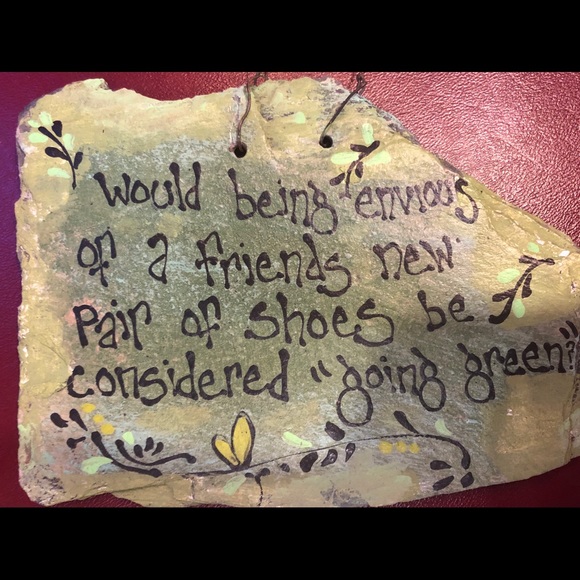 Would being envious
of a friends new
pair of shoes be
considered "going green?"